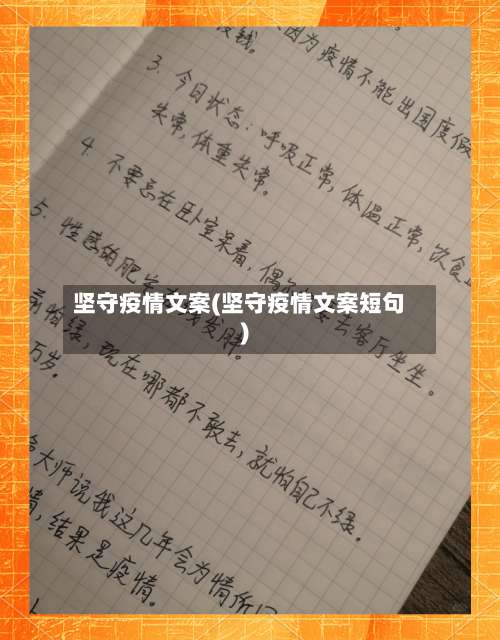 没钱。
因为疫情不能出国度假
3. 今日状态：呼吸正常，体温正常，饮食
失常，体重失常。
4. 不要总在卧室呆着，偶尔 去客厅坐坐。
5. 性感的肥 发胖。
前怕绿，现在哪都不敢去，就怕自己不绿。
万岁。
大师说我这几年会为情所
情，结果是疫情。
坚守疫情文案(坚守疫情文案短句
)